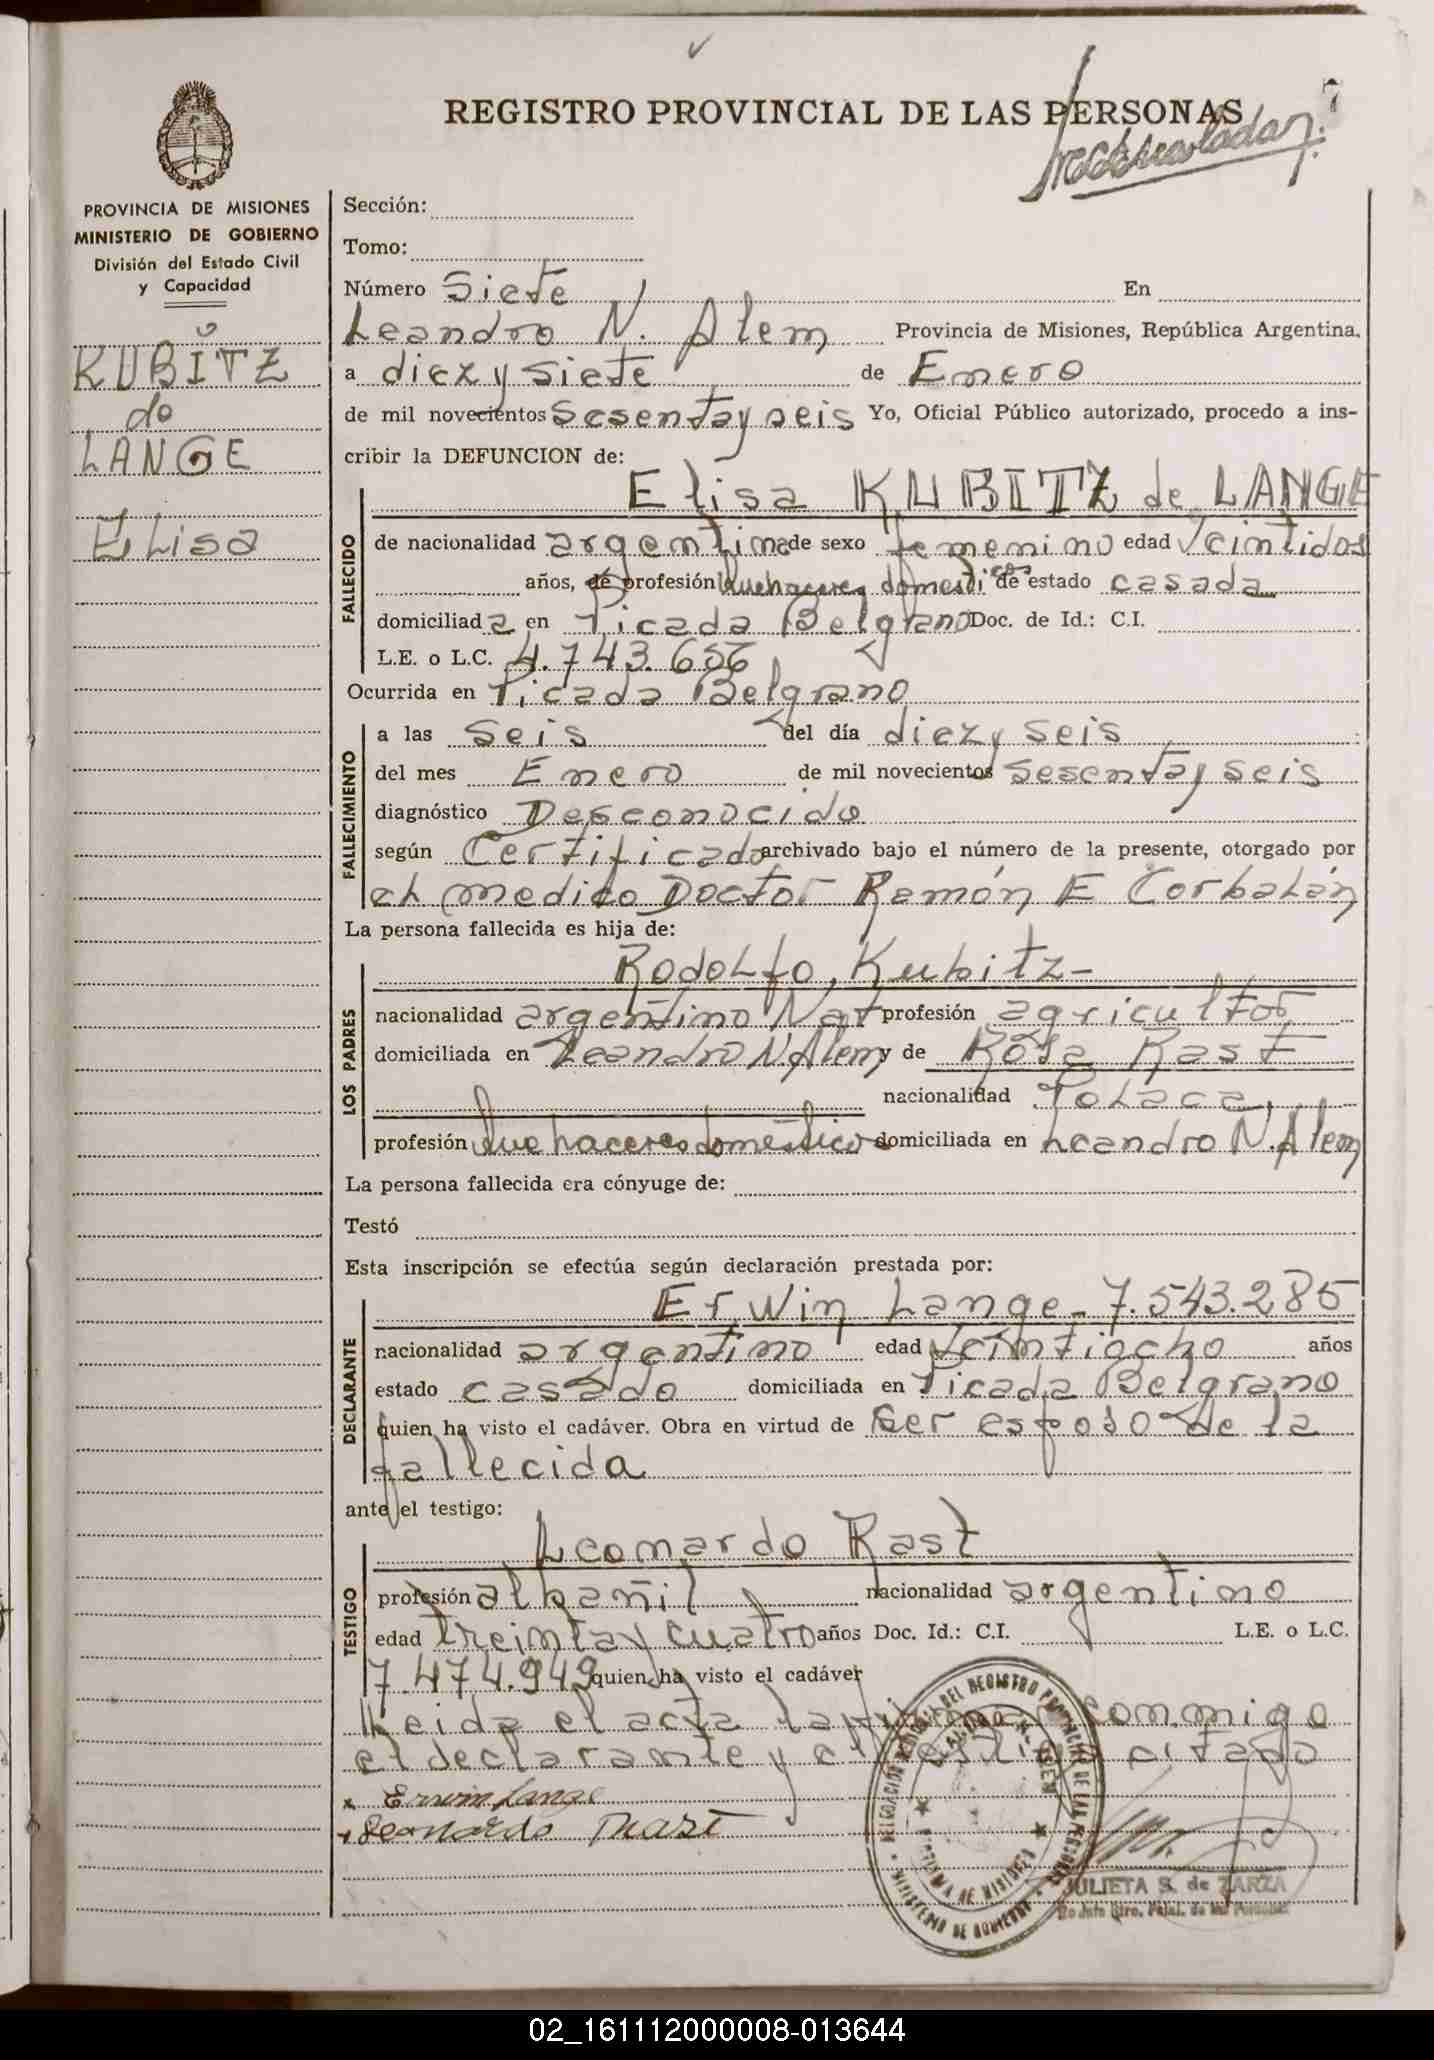 7
REGISTRO PROVINCIAL DE LAS PERSONAS
PROVINCIA DE MISIONES
MINISTERIO DE GOBIERNO
División del Estado Civil
y Capacidad
KUBITZ
de
LANGE
Elisa
Sección:
Tomo:
Número Siete En
Leandro N. Alem Provincia de Misiones, República Argentina,
a diez y siete de Enero
de mil novecientos Sesenta y seis Yo, Oficial Público autorizado, procedo a ins-
cribir la DEFUNCION de:
Elisa KUBITZ de LANGE
FALLECIDO
de nacionalidad argentina de sexo femenino edad Veintidos
años, de profesión Quehaceres domesticos estado casada
domiciliada en Picada Belgrano Doc. de Id.: C.I.
L.E. o L.C. 4.743.656
Ocurrida en Picada Belgrano
FALLECIMIENTO
a las Seis del día diez y seis
del mes Enero de mil novecientos sesenta y seis
diagnóstico Desconocido
según Certificado archivado bajo el número de la presente, otorgado por
el medico Doctor Ramón E Corbalán
La persona fallecida es hija de:
Rodolfo Kubitz -
LOS PADRES
nacionalidad argentino Nat profesión agricultor
domiciliada en Leandro N. Alem y de Rosa Rast
nacionalidad Polaca
profesión Quehaceres domésticos domiciliada en Leandro N. Alem
La persona fallecida era cónyuge de:
Testó
Esta inscripción se efectúa según declaración prestada por:
Erwin Lange - 7.543.285
DECLARANTE
nacionalidad argentino edad Veintiocho años
estado casado domiciliada en Picada Belgrano
quien ha visto el cadáver. Obra en virtud de Ser esposo de la
fallecida
ante el testigo:
Leonardo Rast
TESTIGO
profesión albañil nacionalidad argentino
edad treinta y cuatro años Doc. Id.: C.I. L.E. o L.C.
7.474.949 quien ha visto el cadáver
Leida el acta la firman conmigo
el declarante y el testigo citado
x Erwin Lange
x Leonardo Rast
DELEGACION DEL REGISTRO PROVINCIAL DE LAS PERSONAS
LEANDRO N. ALEM
PROVINCIA DE MISIONES
MINISTERIO DE GOBIERNO
JULIETA S. de ZARZA
02_161112000008-013644